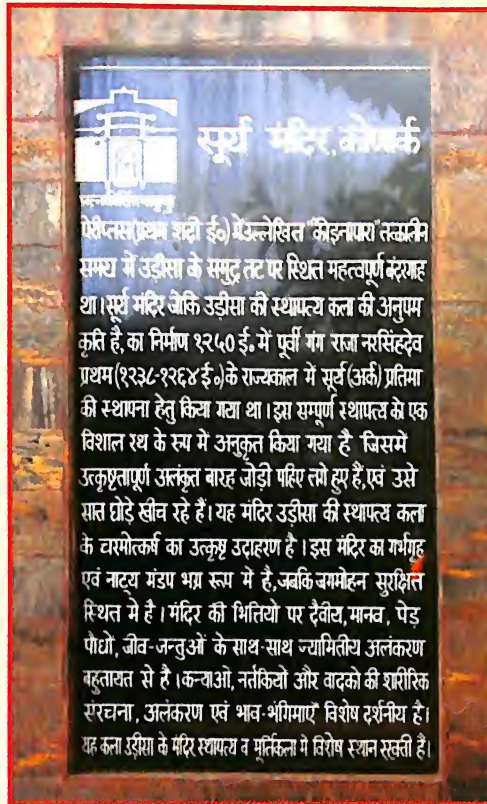 सूर्य मंदिर, कोणार्क
पेरीप्लस (प्रथम शदी ई०) में उल्लेखित "कीइनापारा" तत्कालीन
समय में उड़ीसा के समुद्र तट पर स्थित महत्वपूर्ण बंदरगाह
था। सूर्य मंदिर जोकि उड़ीसा की स्थापत्य कला की अनुपम
कृति है, का निर्माण १२५० ई० में पूर्वी गंग राजा नरसिंहदेव
प्रथम (१२३८-१२६४ ई०) के राज्यकाल में सूर्य (अर्क) प्रतिमा
की स्थापना हेतु किया गया था। इस सम्पूर्ण स्थापत्य को एक
विशाल रथ के रुप में अनुकृत किया गया है जिसमें
उत्कृष्टतापूर्ण अलंकृत बारह जोड़ी पहिए लगे हुए हैं, एवं उसे
सात घोड़े खींच रहे हैं। यह मंदिर उड़ीसा की स्थापत्य कला
के चरमोत्कर्ष का उत्कृष्ट उदाहरण है। इस मंदिर का गर्भगृह
एवं नाट्य मंडप भग्न रूप में है, जबकि जगमोहन सुरक्षित
स्थित मे है। मंदिर की भित्तियो पर दैवीय, मानव, पेड़
पौधों, जीव-जन्तुओं के साथ-साथ ज्यामितीय अलंकरण
बहुतायत से है। कन्याओं, नर्तकियो और वादको की शारीरिक
संरचना, अलंकरण एवं भाव-भंगिमाएँ विशेष दर्शनीय है।
यह कला उड़ीसा के मंदिर स्थापत्य व मूर्तिकला मे विशेष स्थान रखती है।